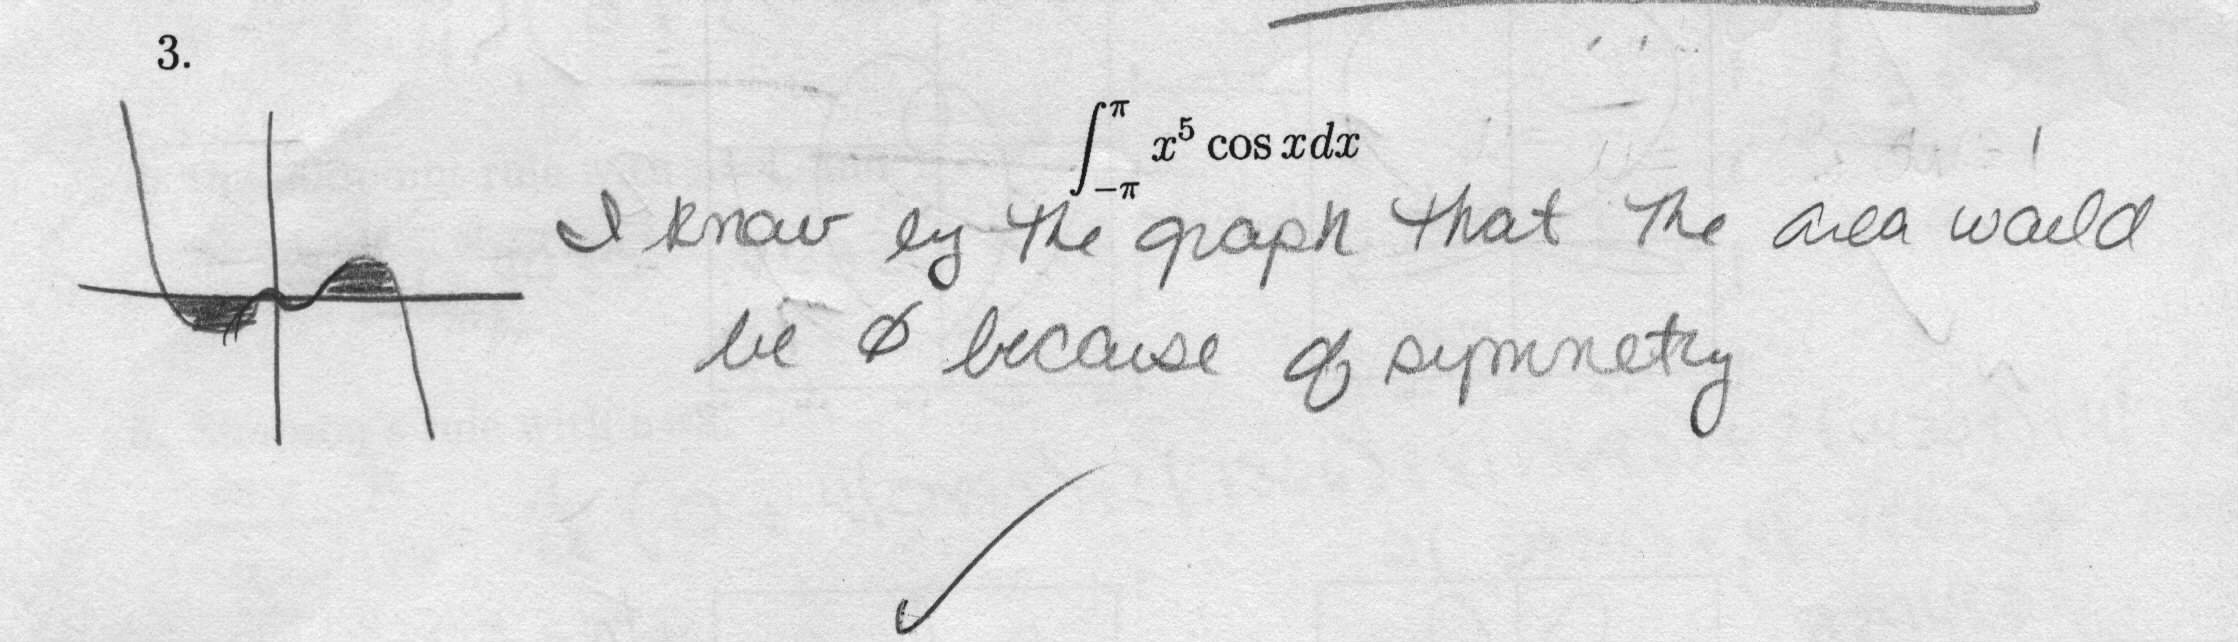 3.
∫_{-π}^{π} x⁵ cos x dx
I know by the graph that the area would
be Ø because of symmetry